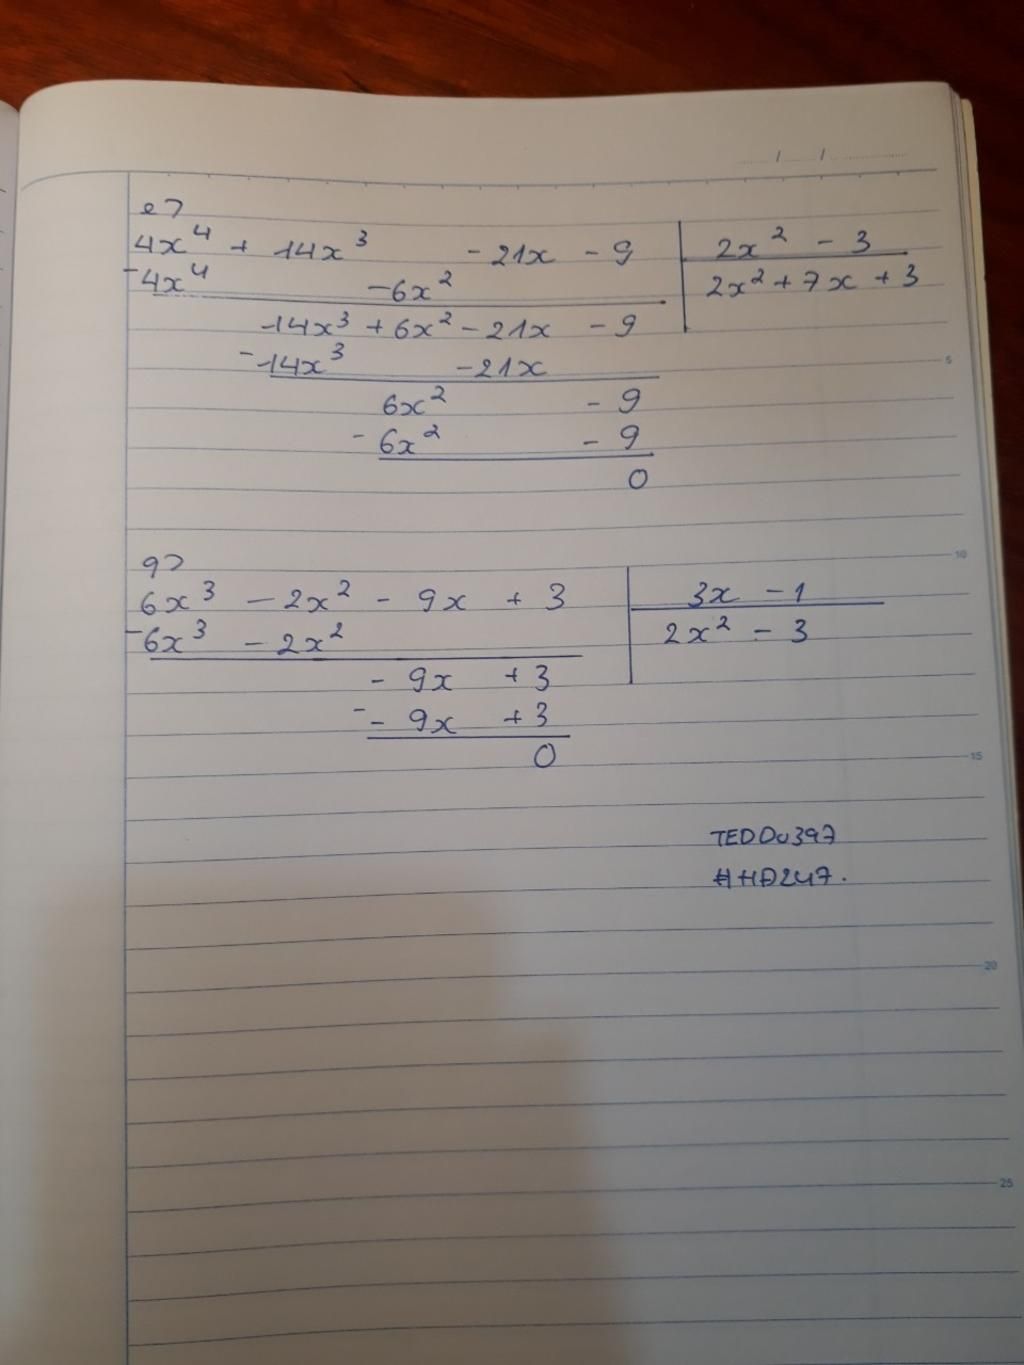 e>
4x⁴ + 14x³ - 21x - 9 | 2x² - 3
- 4x⁴ - 6x² | 2x² + 7x + 3
14x³ + 6x² - 21x - 9
- 14x³ - 21x
6x² - 9
- 6x² - 9
0
g>
6x³ - 2x² - 9x + 3 | 3x - 1
- 6x³ - 2x² | 2x² - 3
- 9x + 3
- - 9x + 3
0
TEDDu397
#HD247.
5
10
15
20
25